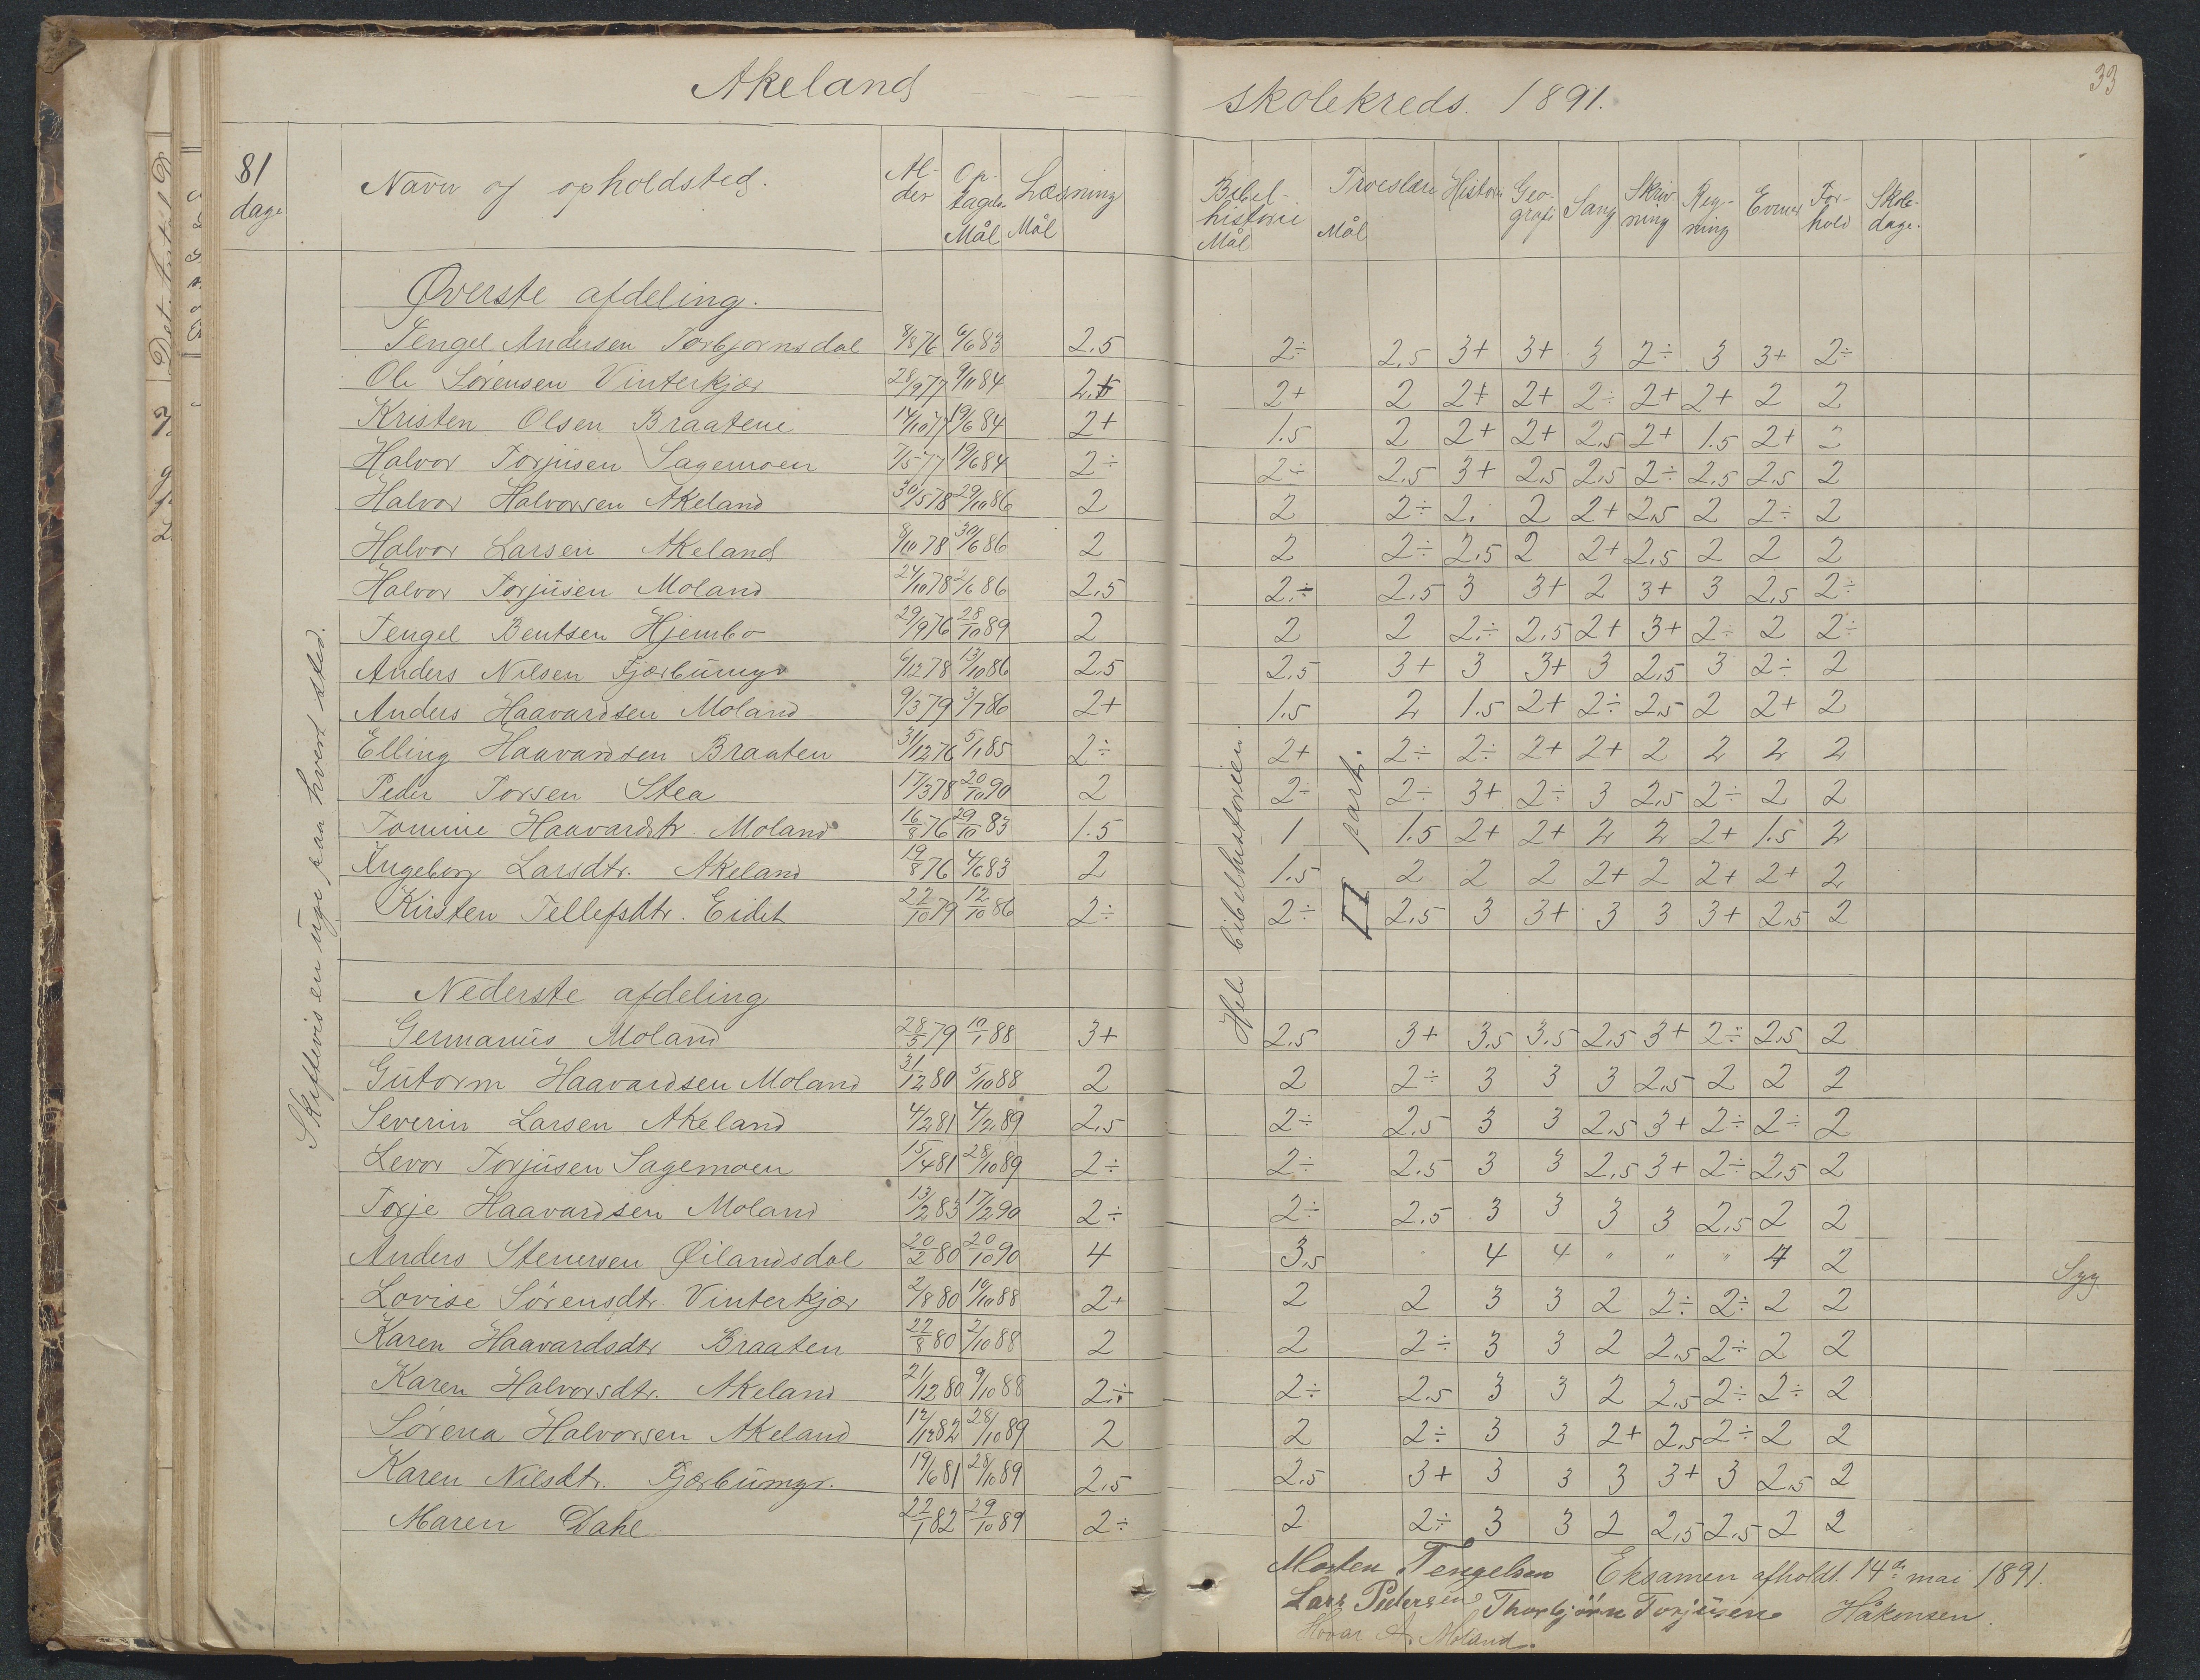 Akeland skolekreds. 1891.
33
81 dage
Navn og opholdsted. Alder Optagelse Mål Læsning Mål Bibelhistorie Mål Troeslære Mål Historie Geografi Sang Skrivning Regning Evner Forhold Skoledage.
Skiftevis en uge paa hvert sted.
Hele bibelhistorien.
II part.
Øverste afdeling.
Tengel Andersen Torbjørnsdal 8/8 76 6/6 83 2.5 2÷ 2.5 3+ 3+ 3 2÷ 3 3+ 2÷
Ole Sørensen Vinterkjær 28/9 77 9/11 84 2+ 2 2+ 2+ 2÷ 2+ 2+ 2 2
Kristen Olsen Braatene 14/10 77 19/6 84 2+ 1.5 2 2+ 2+ 2.5 2+ 1.5 2+ 2
Halvor Torjusen Sagemoen 7/5 77 19/6 84 2÷ 2÷ 2.5 3+ 2.5 2.5 2÷ 2.5 2.5 2
Halvor Halvorsen Akeland 30/5 78 29/10 86 2 2 2÷ 2. 2 2+ 2.5 2 2÷ 2
Halvor Larsen Akeland 8/10 78 30/6 86 2 2 2÷ 2.5 2 2+ 2.5 2 2 2
Halvor Torjusen Moland 24/10 78 2/6 86 2.5 2.÷ 2.5 3 3+ 2 3+ 3 2.5 2÷
Tengel Bentsen Hjembo 29/9 76 28/10 89 2 2 2 2÷ 2.5 2+ 3+ 2÷ 2 2÷
Anders Nilsen Fjærbumyr 6/12 78 13/10 86 2.5 2.5 3+ 3 3+ 3 2.5 3 2÷ 2
Anders Haavardsen Moland 9/3 79 3/7 86 2+ 1.5 2 1.5 2+ 2÷ 2.5 2 2+ 2
Elling Haavardsen Braaten 31/12 76 5/1 85 2÷ 2+ 2÷ 2÷ 2+ 2+ 2 2 2 2
Peder Torsen Stea 17/3 78 20/10 90 2 2÷ 2÷ 3+ 2÷ 3 2.5 2÷ 2 2
Tomine Haavardstr. Moland 16/8 76 29/10 83 1.5 1 1.5 2+ 2+ 2 2 2+ 1.5 2
Ingeborg Larsdtr. Akeland 19/8 76 4/6 83 2 1.5 2 2 2 2+ 2 2+ 2+ 2
Kirsten Tellefsdtr. Eidet 22/10 79 12/10 86 2÷ 2÷ 2.5 3 3+ 3 3 3+ 2.5 2
Nederste afdeling
Germanius Moland 28/5 79 10/1 88 3+ 2.5 3+ 3.5 3.5 2.5 3+ 2÷ 2.5 2
Gutorm Haavardsen Moland 31/12 80 5/10 88 2 2 2÷ 3 3 3 2.5 2 2 2
Severin Larsen Akeland 4/2 81 4/2 89 2.5 2÷ 2.5 3 3 2.5 3+ 2÷ 2÷ 2
Levor Torjusen Sagemoen 15/4 81 28/10 89 2÷ 2÷ 2.5 3 3 2.5 3+ 2÷ 2.5 2
Torje Haavardsen Moland 13/2 83 17/2 90 2÷ 2÷ 2.5 3 3 3 3 2.5 2 2
Anders Stenersen Øilandsdal 20/2 80 20/10 90 4 3.5 4 4 " " " 4 2 Syg.
Lovise Sørensdtr. Vinterkjær 2/8 80 10/10 88 2+ 2 2 3 3 2 2÷ 2÷ 2 2
Karen Haavardsdtr Braaten 22/8 80 2/10 88 2 2 2÷ 3 3 2 2.5 2÷ 2 2
Karen Halvorsdtr. Akeland 21/12 80 9/10 88 2.÷ 2÷ 2.5 3 3 2 2.5 2÷ 2÷ 2
Sørena Halvorsen Akeland 12/12 82 28/10 89 2 2 2÷ 3 3 2+ 2.5 2÷ 2 2
Karen Nilsdtr. Fjærbumyr. 19/6 81 28/10 89 2.5 2.5 3+ 3 3 3 3+ 3 2.5 2
Maren Dahl 22/1 82 29/10 89 2÷ 2 2÷ 3 3 2 2.5 2.5 2 2
Morten Tengelsen Eksamen afholdt 14de mai 1891.
Lars Pedersen Thorbjørn Torjusen Håkonsen.
Hovar A. Moland.